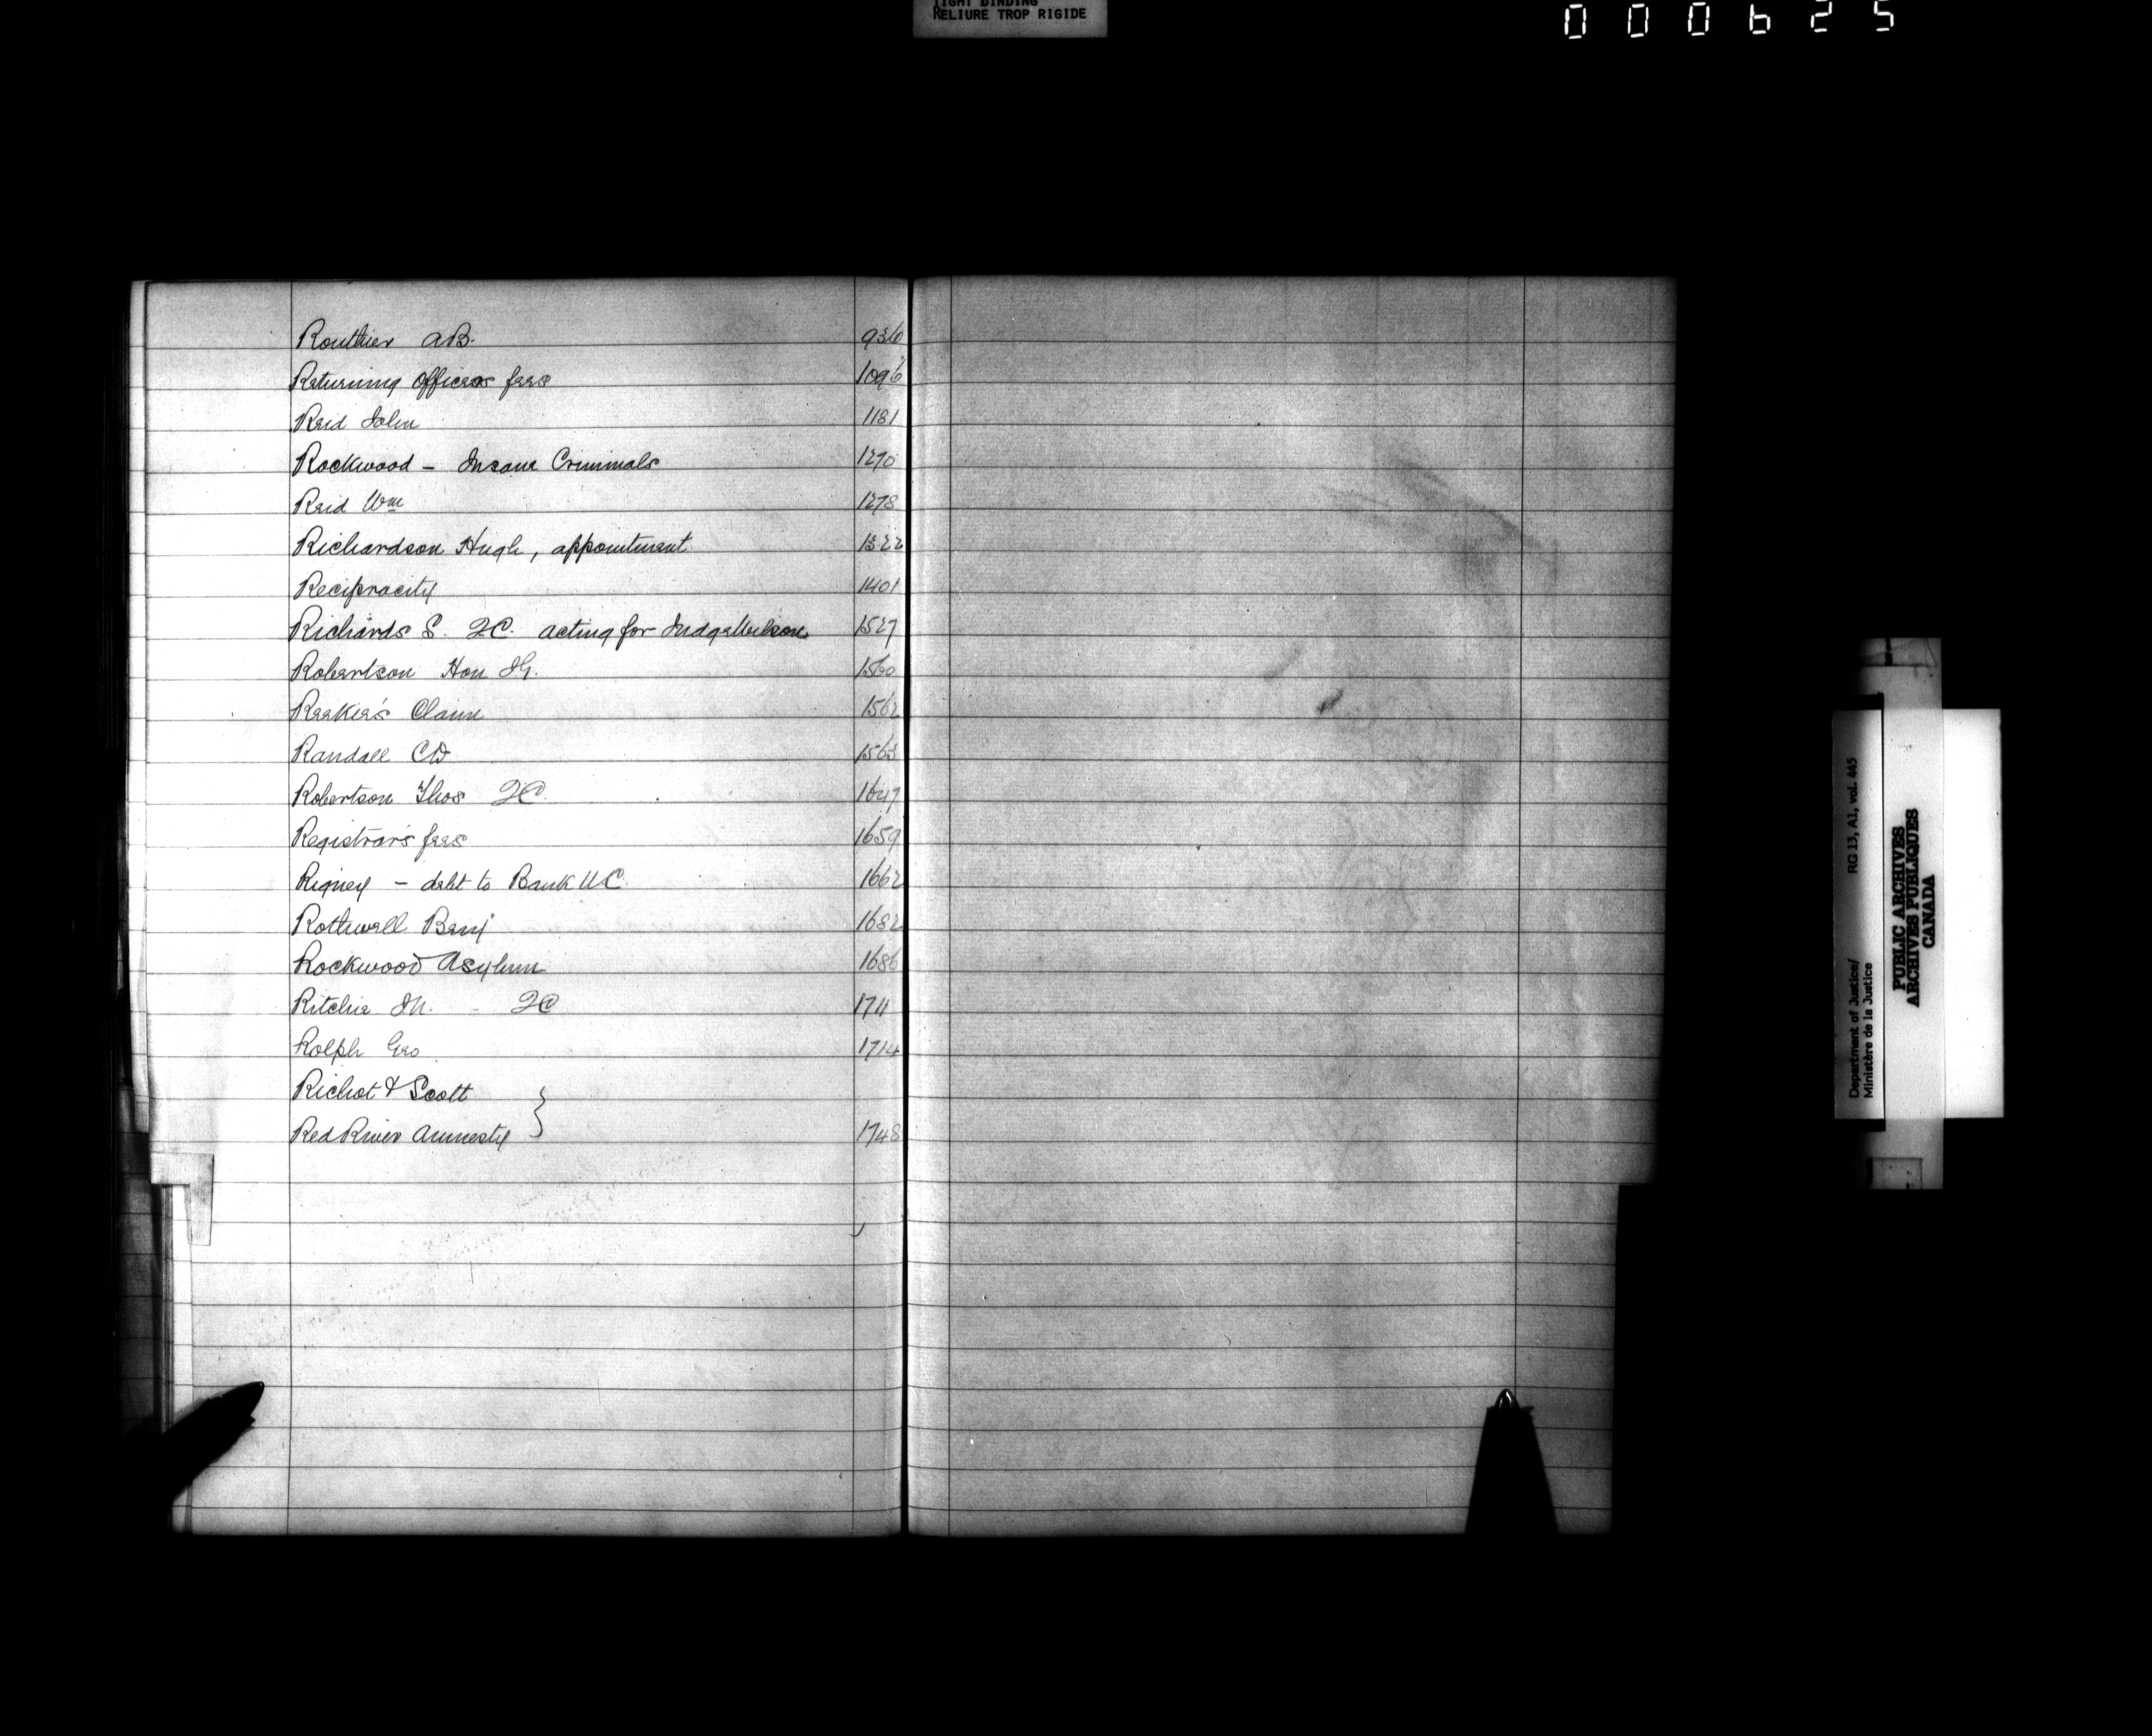 TIGHT BINDING
RELIURE TROP RIGIDE
000625
Routhier AB. 936
Returning Officers fees 1096
Reid John 1181
Rockwood - Insane Criminals 1270
Reid Wm 1278
Richardson Hugh, appointment 1322
Reciprocity 1401
Richards S. QC. acting for Judge Wilson 1527
Robertson Hon 1560
Claim 1562
Randall CD 1563
Robertson Thos QC. 1647
Registrar's fees 1659
Rigney - debt to Bank UC. 1662
Rothwell Benj 1682
Rockwood Asylum 1686
Ritchie QC 1711
Rolph Geo. 1714
Richot & Scott }
Red River Amnesty 1748
Department of Justice/ RG 13, A1, vol. 445
Ministère de la Justice
PUBLIC ARCHIVES
ARCHIVES PUBLIQUES
CANADA